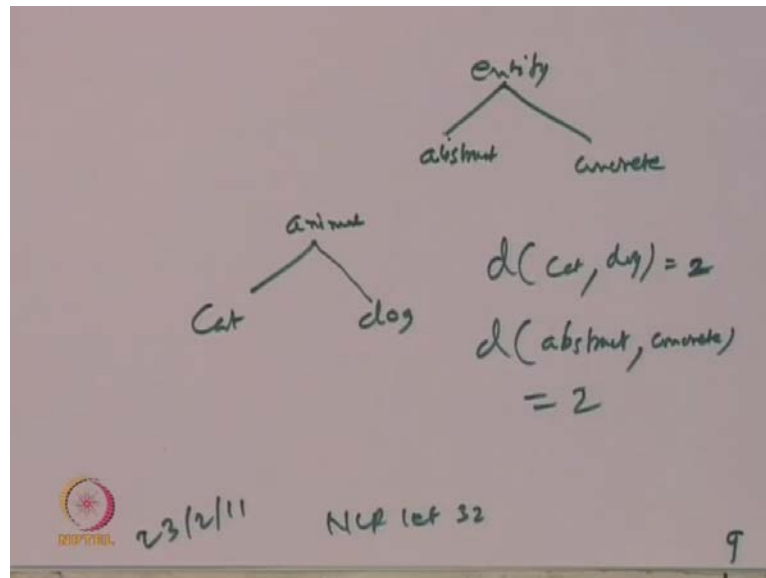 entity
abstract concrete
animal
Cat dog
d(cat, dog) = 2
d(abstract, concrete)
= 2
NPTEL
23/2/11 NLP lect 32
9